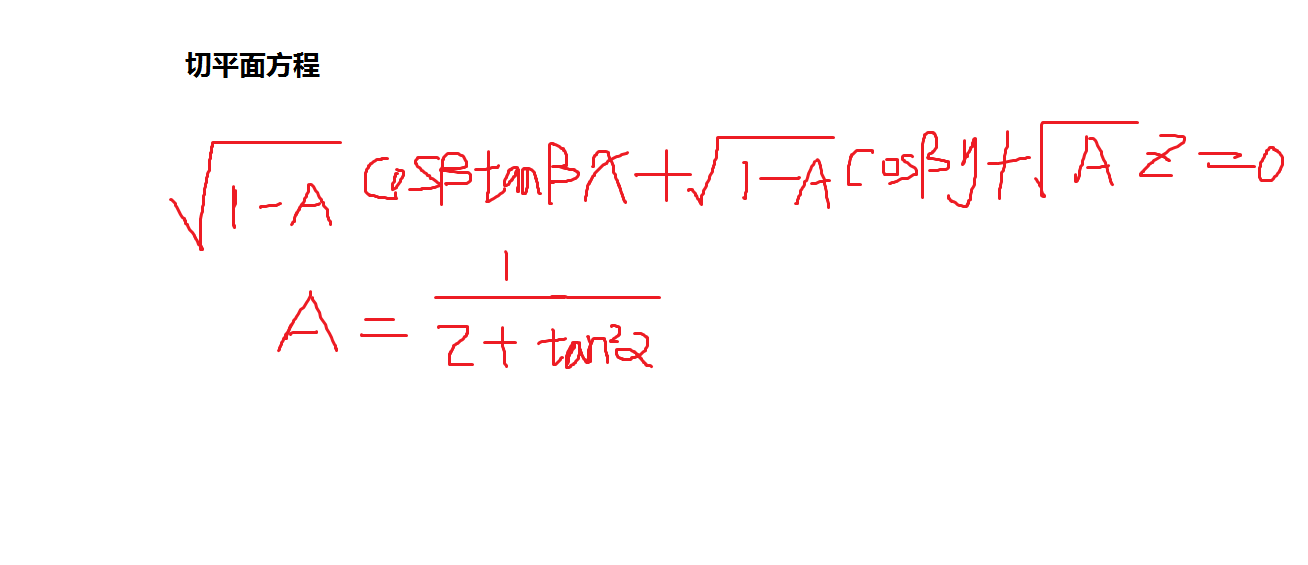 切平面方程
√(1-A) cosβtanβx+√(1-A) cosβy+√A z=0
A = 1/(2+tan²α)